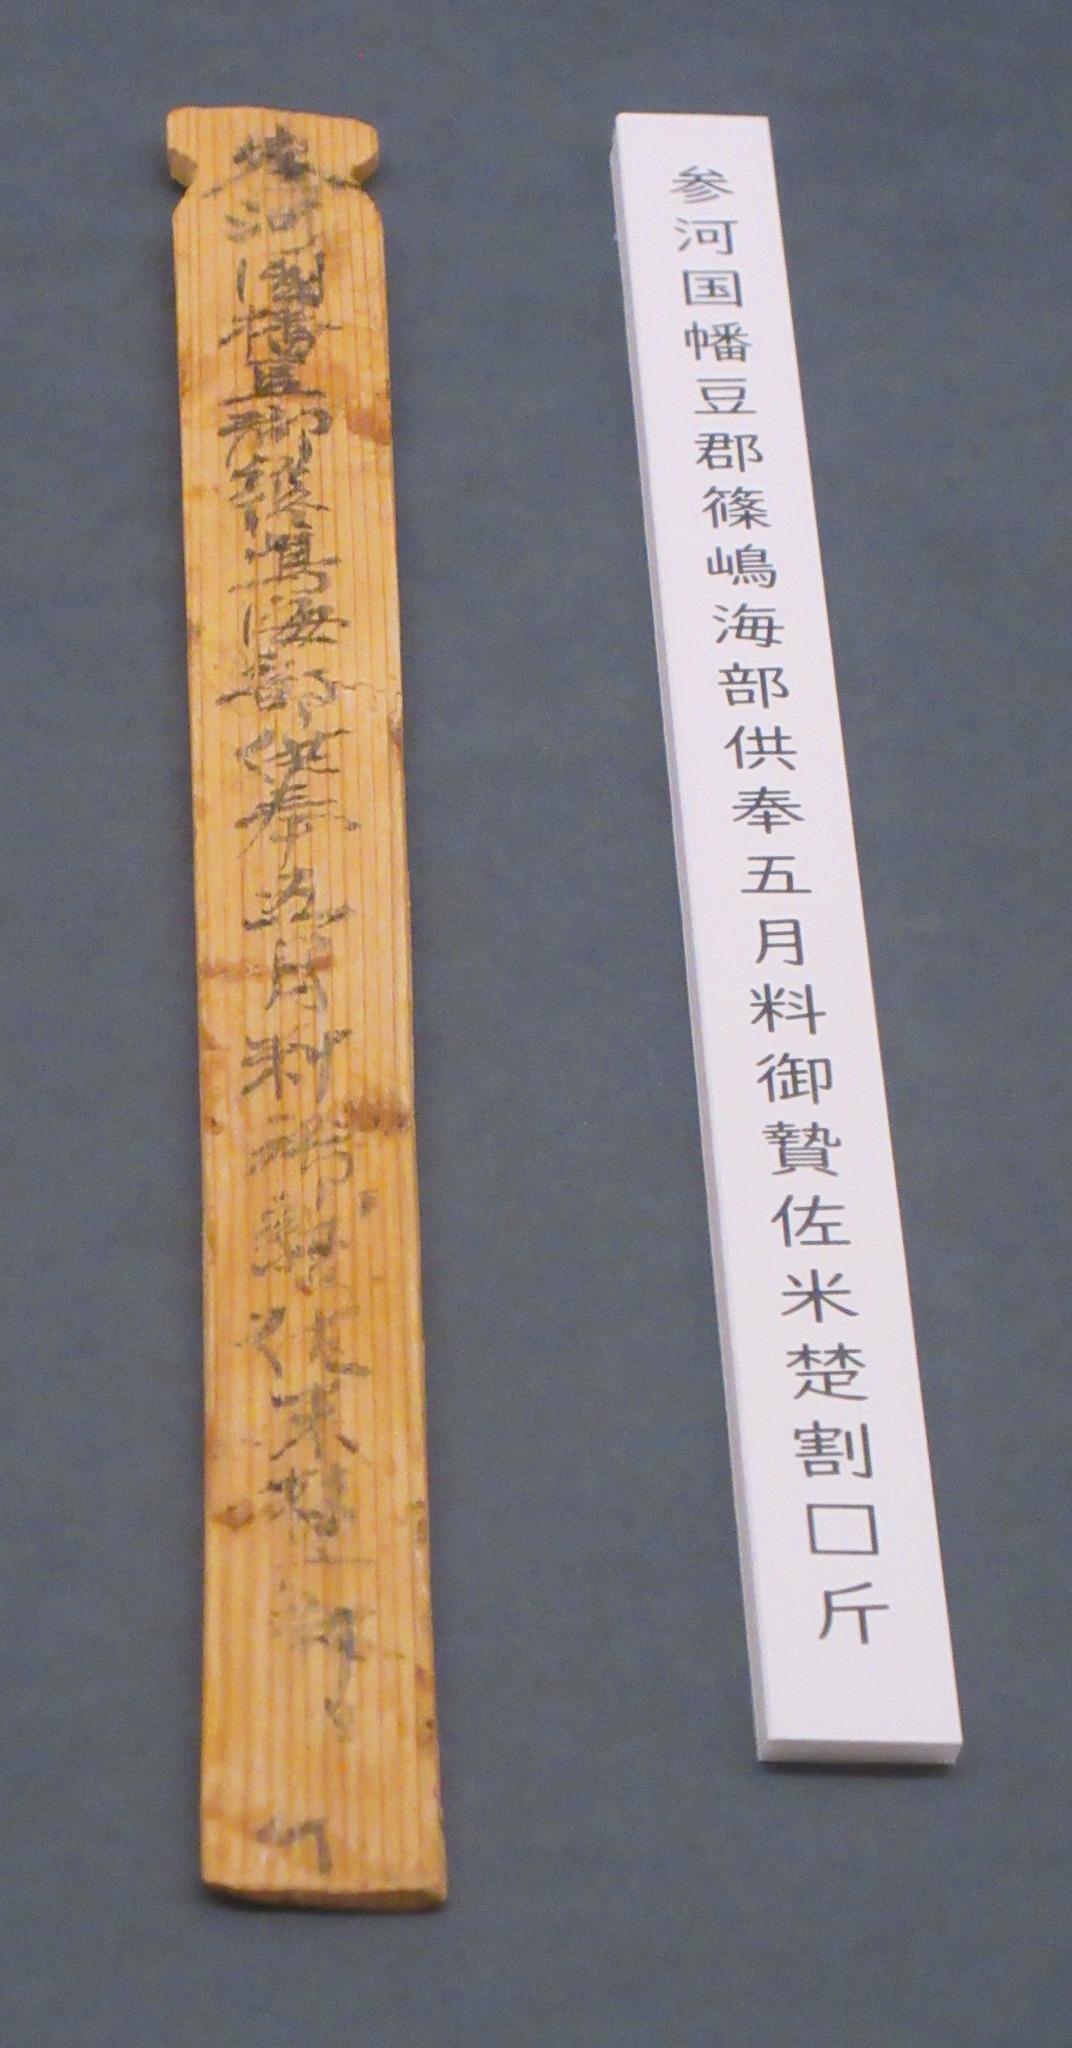 参河国幡豆郡篠嶋海部供奉五月料御贄佐米楚割□斤
参河国幡豆郡篠嶋海部供奉五月料御贄佐米楚割 斤